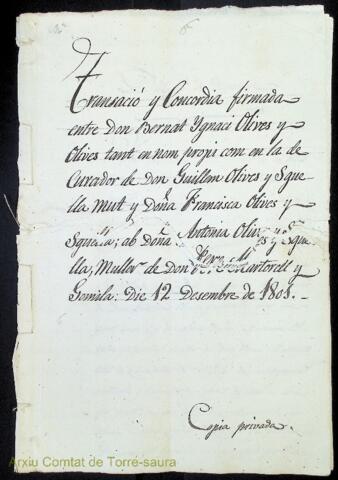 Transació y Concordia firmada
entre Don Bernat Ygnaci Olives y
Olives tant en nom propi com en la de
Curador de Don Guillem Olives y Sque
lla mut y Dña. Francisca Olives y
Squella; ab Dña. Antonia Olives y Sque
lla, Muller de Don Martorell y
Gomila: Die 12 Desembre de 1801.
Copia privada.
Arxiu Comtat de Torre-saura